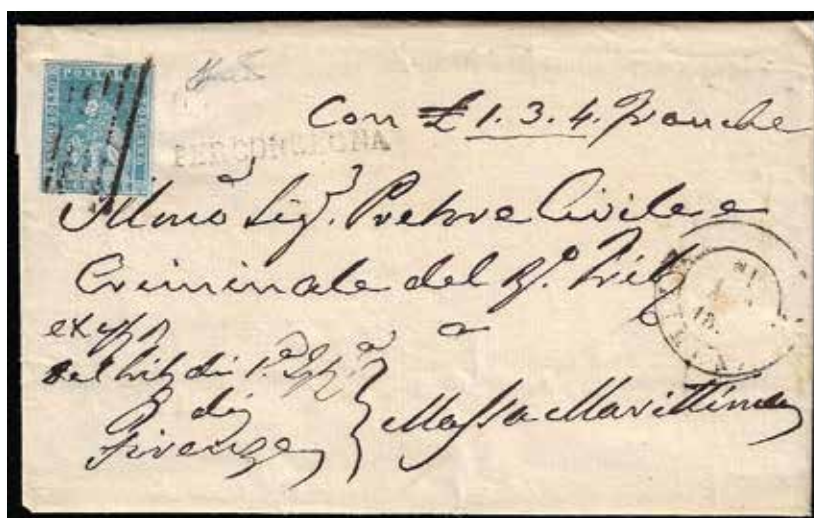 Con £ 1.3.4. franche
PER CONSEGNA
Illmo Sig.r Pretore Civile e
Criminale del R.o Trib
a
ex uffo
del Trib di 1.a Ist.a
di
Firenze
Massa Marittima